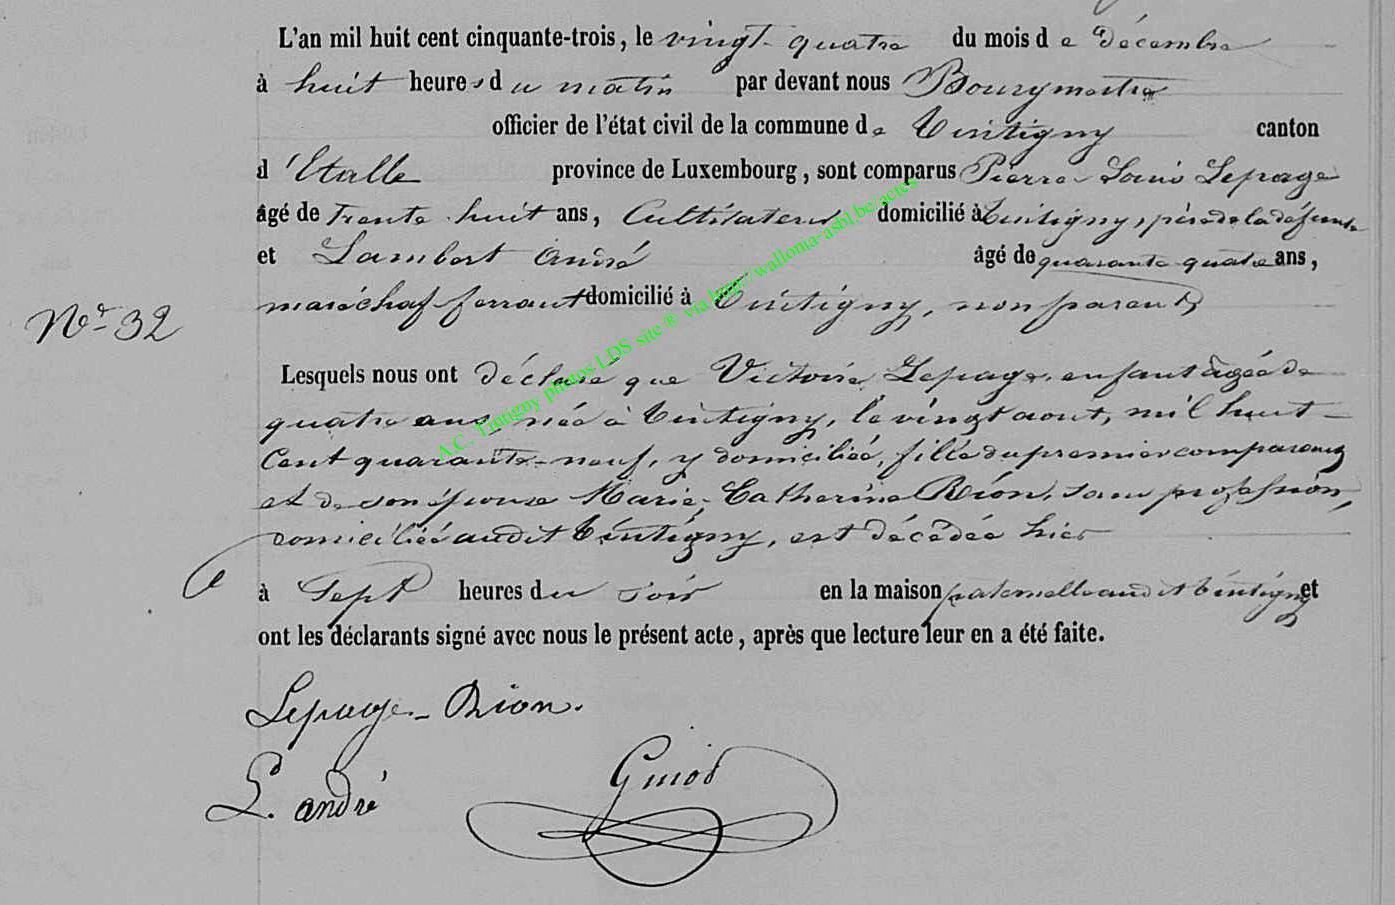 L'an mil huit cent cinquante-trois, le vingt quatre du mois de décembre
à huit heures du matin par devant nous Bourgmestre
officier de l'état civil de la commune de Tintigny canton
d'Etalle province de Luxembourg, sont comparus Pierre Louis Lepage
âgé de Trente huit ans, Cultivateur domicilié à Tintigny, père de la défunte
et Lambert André âgé de quarante quatre ans,
maréchal ferrant domicilié à Tintigny, non parent
N° 32
Lesquels nous ont déclaré que Victoire Lepage, enfant âgée de
quatre ans née à Tintigny, le vingt aout, mil huit
Cent quarante-neuf, y domiciliée, fille du premier comparant
et de son épouse Marie, Catherine Rion, sans profession,
domiciliée audit Tintigny, est décédée hier
à Sept heures du soir en la maison paternelle audit Tintigny et
ont les déclarants signé avec nous le présent acte, après que lecture leur en a été faite.
Lepage-Rion.
L. andré
Guiot
A.C. Tintigny photos LDS site ® via http://wallonia-asbl.be/actes